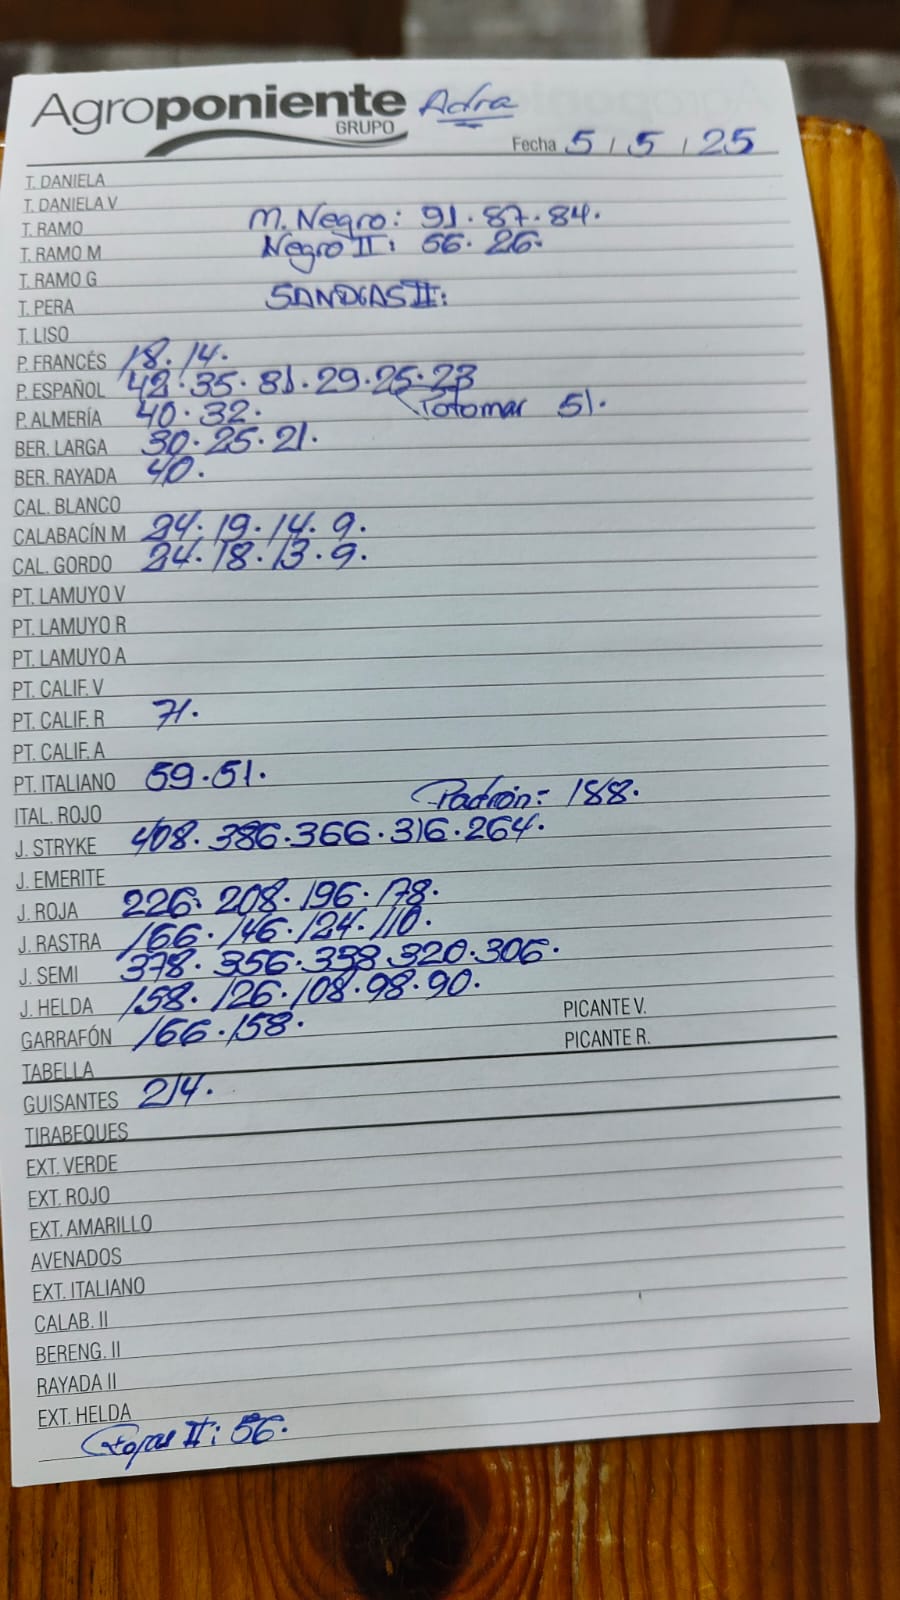 Agroponiente Adra
GRUPO
Fecha 5 / 5 / 25
T. DANIELA
T. DANIELA V
T. RAMO M. Negro: 91. 87. 84.
T. RAMO M Negro II: 66. 26.
T. RAMO G
T. PERA SANDIAS II:
T. LISO
P. FRANCÉS 18. 14.
P. ESPAÑOL 42. 35. 31. 29. 25. 23
P. ALMERÍA 40. 32. Totomar 51.
BER. LARGA 30. 25. 21.
BER. RAYADA 40.
CAL. BLANCO
CALABACÍN M 24. 19. 14. 9.
CAL. GORDO 24. 18. 13. 9.
PT. LAMUYO V
PT. LAMUYO R
PT. LAMUYO A
PT. CALIF. V
PT. CALIF. R 71.
PT. CALIF. A
PT. ITALIANO 59. 51.
ITAL. ROJO Padrón: 188.
J. STRYKE 408. 386. 366. 316. 264.
J. EMERITE
J. ROJA 226. 208. 196. 178.
J. RASTRA 166. 146. 124. 110.
J. SEMI 378. 356. 338. 320. 306.
J. HELDA 158. 126. 108. 98. 90.
GARRAFÓN 166. 158. PICANTE V.
PICANTE R.
TABELLA
GUISANTES 214.
TIRABEQUES
EXT. VERDE
EXT. ROJO
EXT. AMARILLO
AVENADOS
EXT. ITALIANO
CALAB. II
BERENG. II
RAYADA II
EXT. HELDA
II: 56.